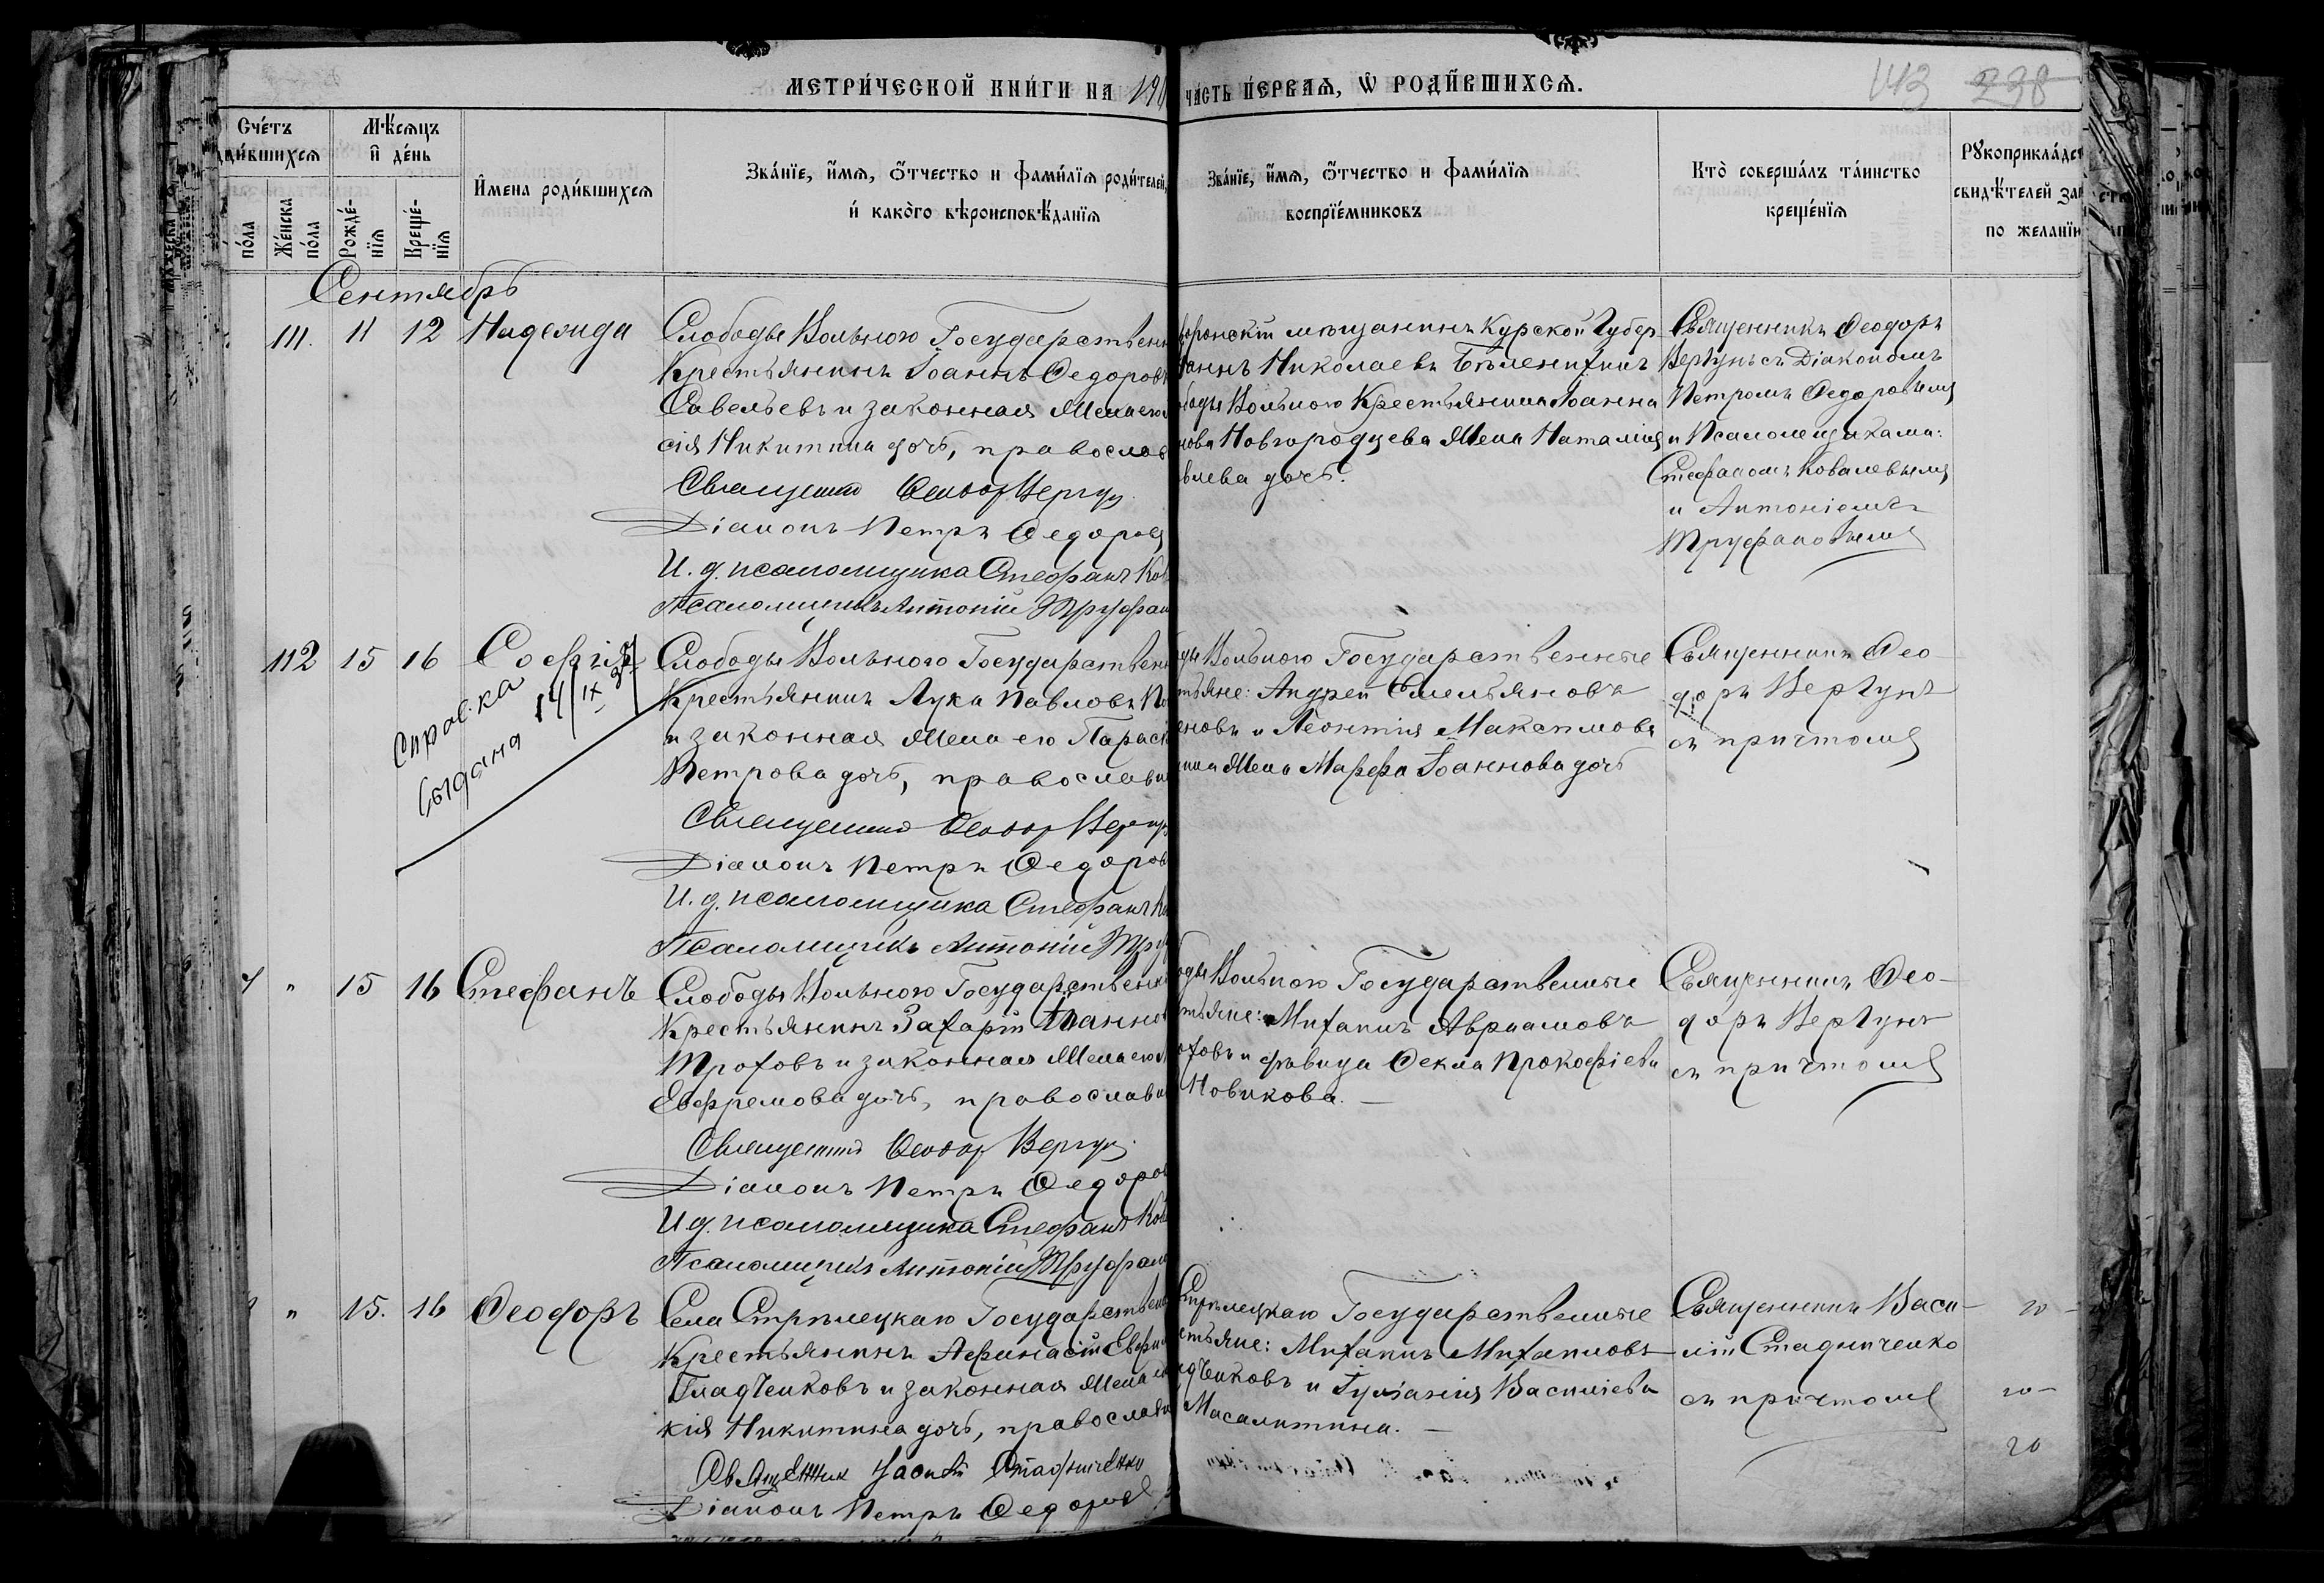 МЕТРИ́ЧЕСКОЙ КНИ́ГИ НА 190
ЧА́СТЬ ПЕ́РВАЯ, Ѡ РОДИ́ВШИХСЯ.
143 238
Сче́тъ
ди́вшихся
по́ла
Же́нска
по́ла
Мѣ́сяцъ
и де́нь
Рожде́-
нїя
Креще́-
нїя
И҆мена роди́вшихся
Зва́нїе, и҆́мя, о҆́тчество и фами́лїя роди́телей,
и҆ како́го вѣроисповѣ́данїя
Зва́нїе, и҆́мя, о҆́тчество и фами́лїя
воспрїе́мниковъ
Кто̀ соверша́лъ та́инство
креще́нїя
Рꙋкоприкла́дс
свидѣ́телей за
по жела́нїю
Сентябрь
111. 11 12 Надежда
Слободы Вольного Государствен
Крестьянинъ Іоаннъ Ѳедоровъ
Савельевъ и законная жена его
сія Никитина дочь, православ
Священник Ѳеодор Вергун
Діаконъ Петръ Ѳедоров
И. д. псаломщика Стефанъ Ков
Псаломщикъ Антоній Труфан
воронскій мѣщанинъ Курской Губер
аннъ Николаевъ Бѣленихинъ
ободы Вольного Крестьянина Іоанна
нова Новгородцева жена Наталія
влева дочь.
Священникъ Ѳеодоръ
Вергунъ съ Діакономъ
Петромъ Ѳедоровымъ
и Псаломщиками:
Стефаномъ Ковалевымъ
и Антоніемъ
Труфановымъ
112 15 16 Софія
Справка
выдана 14/IX
Слободы Вольного Государствен
Крестьянинъ Лука Павловъ По
и законная жена его Параск
Петрова дочь, православн
Священник Ѳеодор Вергун
Діаконъ Петръ Ѳедоров
И. д. псаломщика Стефанъ Ко
Псаломщикъ Антоній Тру
ды Вольного Государственные
тьяне: Андрей Емельяновъ
еновъ и Леонтія Максимова
ина жена Марфа Іоаннова дочь
Священникъ Ѳео-
доръ Вергунъ
съ причтомъ
" 15 16 Стефанъ
Слободы Вольного Государственн
Крестьянинъ Захарій Іоаннов
Трофовъ и законная жена его
Евфремова дочь, православн
Священник Ѳеодор Вергун.
Діаконъ Петръ Ѳедоров
И. д. псаломщика Стефанъ Ков
Псаломщикъ Антоній Труфан
оды Вольного Государственные
тьяне: Михаилъ Авраамовъ
офовъ и дѣвица Ѳекла Прокофіева
Новикова. —
Священникъ Ѳео-
доръ Вергунъ
съ причтомъ
" 15. 16 Ѳеодоръ
Села Стрѣлецкаго Государствен
Крестьянинъ Афанасій Евфи
Гладченковъ и законная жена е
кія Никитина дочь, православ
Священник Василій Стадниченко
Діаконъ Петръ Ѳедоров
Стрѣлецкаго Государственные
стьяне: Михаилъ Михаиловъ
дченковъ и Іуліанія Василіева
Масалитина. —
Священникъ Васи-
лій Стадниченко
съ причтомъ
20 -
20 -
20